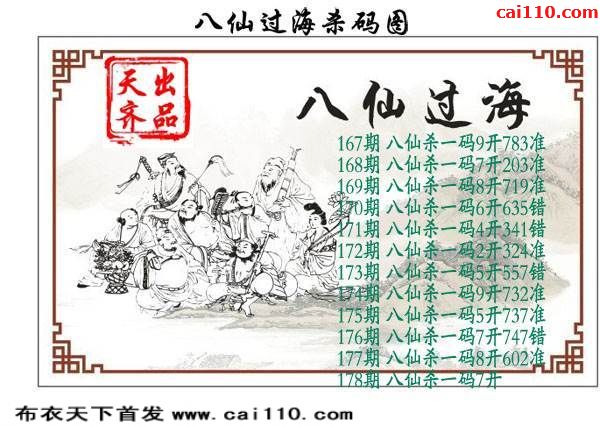 八仙过海杀码图
cai110.com
天出
齐品
八仙过海
167期 八仙杀一码9开783准
168期 八仙杀一码7开203准
169期 八仙杀一码8开719准
170期 八仙杀一码6开635错
171期 八仙杀一码4开341错
172期 八仙杀一码2开324准
173期 八仙杀一码5开557错
174期 八仙杀一码9开732准
175期 八仙杀一码5开737准
176期 八仙杀一码7开747错
177期 八仙杀一码8开602准
178期 八仙杀一码7开
布衣天下首发 www.cai110.com